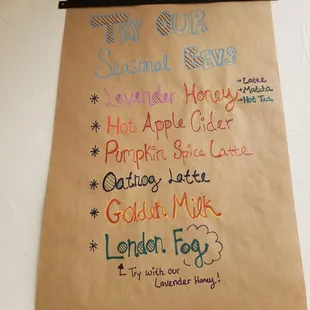 TRY OUR
Seasonal BEVS
* Lavender Honey → Latte
→ Matcha
→ Hot Tea
* Hot Apple Cider
* Pumpkin Spice Latte
* Oatnog Latte
* Golden Milk
* London Fog
↳ Try with our
Lavender Honey!